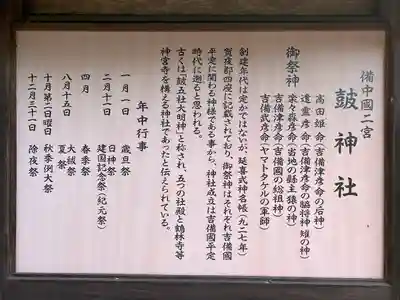 備中國二宮
皷神社
御祭神
高田姫命(吉備津彦命の后神)
遣霊彦命(吉備津彦命の脇将神雉の神)
楽々森彦命(当地の縣主猿の神)
吉備津彦命(吉備國の総祖神)
吉備武彦命(ヤマトタケルの軍師)
創建年代は定かではないが、延喜式神名帳(九二七年)
賀夜郡四座に記載されており、御祭神はそれぞれ吉備國
平定に関わる神様である事から、神社成立は吉備國平定
時代に遡ると思われる。
古くは「皷五社大明神」と称され、五つの社殿と鶴林寺等
神宮寺を構える神社であったと伝えられている。
年中行事
一月一日 歳旦祭
二月十一日 日神祭
建国記念祭(紀元祭)
四月 春季祭
大祓祭
八月十五日 夏祭
十月第二日曜日 秋季例大祭
十二月三十一日 除夜祭